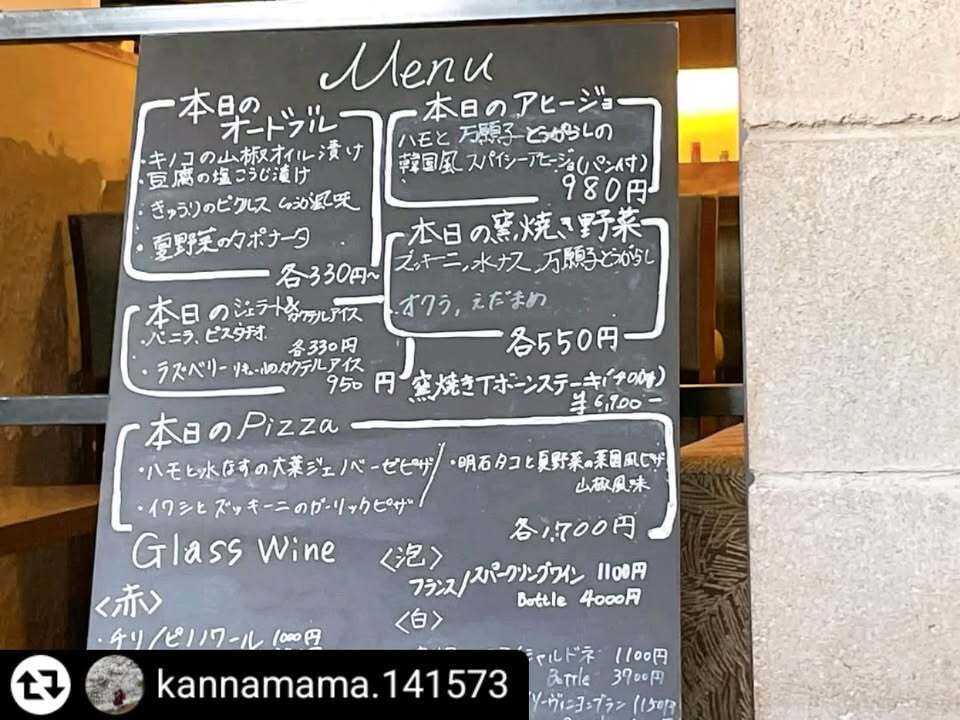 Menu
本日の
オードブル
・キノコの山椒オイル漬け
・豆腐の塩こうじ漬け
・きゅうりのピクルス しょうが風味
・夏野菜のカポナータ
各330円〜
本日のアヒージョ
ハモと万願寺とうがらしの
韓国風スパイシーアヒージョ(パン付)
980円
本日の窯焼き野菜
ズッキーニ,水ナス,万願寺とうがらし
オクラ,えだまめ
各550円
本日のジェラート&
カクテルアイス
・バニラ、ピスタチオ
各330円
・ラズベリーリキュールのカクテルアイス
950円
窯焼きTボーンステーキ
¥6,900ー
本日のPizza
・ハモと水なすの大葉ジェノベーゼピザ
・明石タコと夏野菜の菜園風ピザ
山椒風味
・イワシとズッキーニのガーリックピザ
各1,700円
Glass Wine
〈泡〉
フランス/スパークリングワイン 1100円
Bottle 4000円
〈赤〉
・チリ/ピノノワール 1000円
〈白〉
シャルドネ 1100円
Bottle 3700円
ソーヴィニヨンブラン 1150円
kannamama.141573